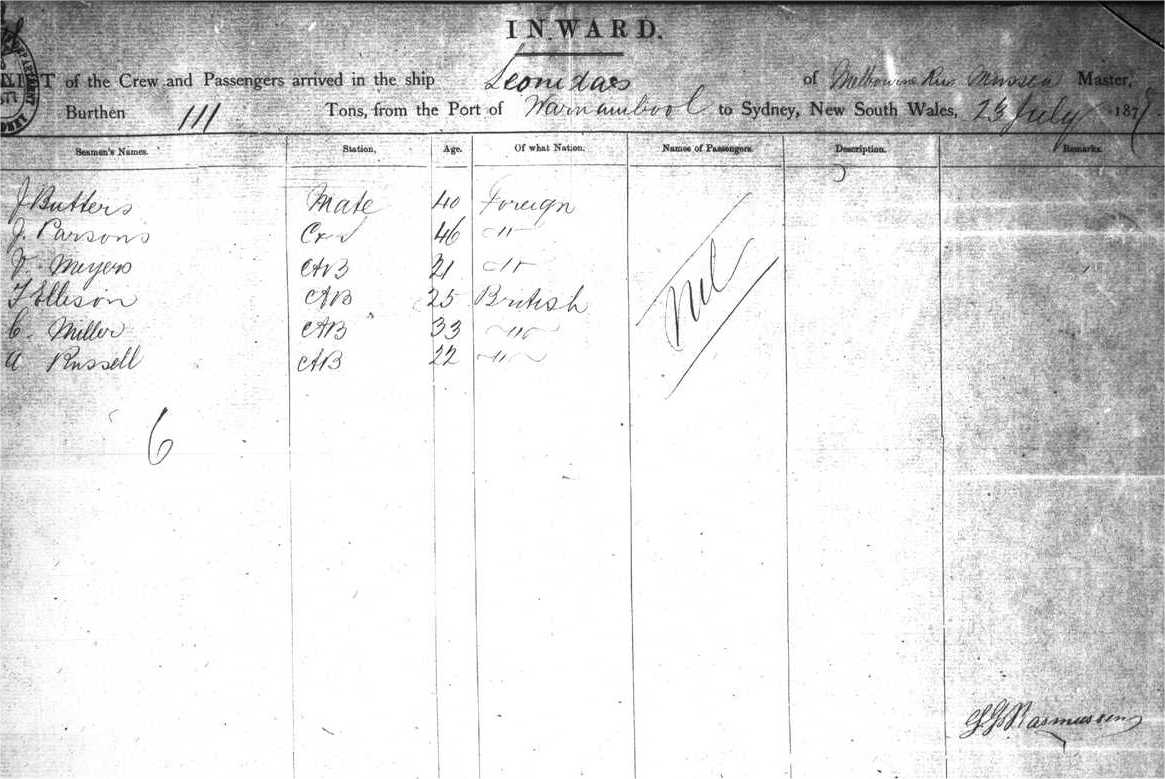 INWARD.
LIST of the Crew and Passengers arrived in the ship Leonidas of Melbourne Master,
Burthen 111 Tons, from the Port of Warnambool to Sydney, New South Wales, 23 July 187
Seamen's Names. Station, Age. Of what Nation. Names of Passengers. Description. Remarks.
J Butters Mate 40 Foreign
J. Parsons 46 "
V. Meyers AB 21 "
T Ellison AB 25 British
C. Miller AB 33 "
A Russell AB 22 "
Nil
6
Rasmussen